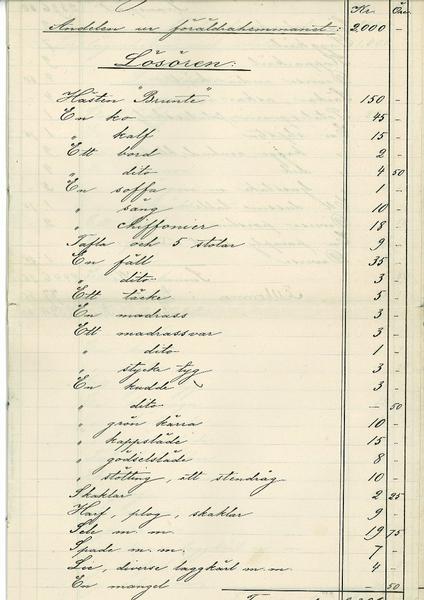 Kr. Öre
Andelen ur föräldrahemmanet: 2,000 -
Lösören:
Hästen "Brunte" 150 -
En ko 45 -
" kalf 15 -
Ett bord 2 -
" dito 4 50
En soffa 1 -
" säng 10 -
" chiffonier 18 -
Tafla och 5 stolar 9 -
En fäll 35 -
" dito 3 -
Ett täcke 5 -
En madrass 3 -
Ett madrassvar 3 -
" dito 1 -
" stycke tyg 3 -
En kudde 3 -
" dito - 50
" grön kärra 10 -
" kappsläde 15 -
" gödselsläde 8 -
" stötting, ett stendråg 10 -
Skaklar 2 25
Harf, plog, skaklar 9 -
Sele m. m. 19 75
Spade m. m. 7 -
Lie, diverse laggkärl m. m. 4 -
En mangel - 50